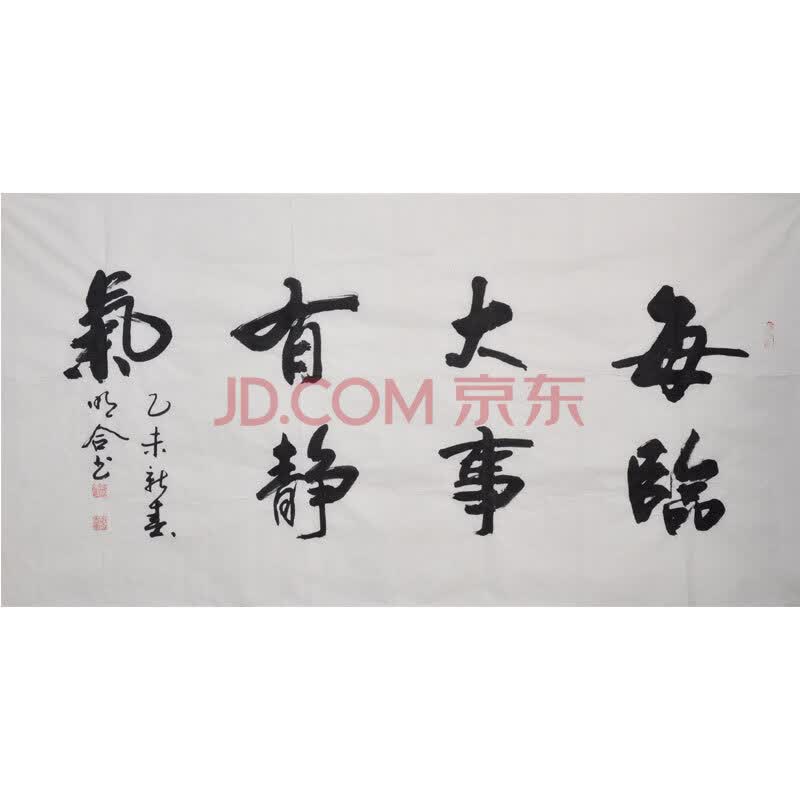 每臨
大事
有静
氣
乙未新春
明合书
JD.COM 京东